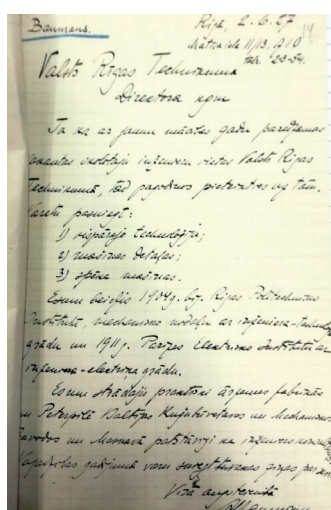 Baumans.
Rīgā, 2. 6. 27
Matīsa ielā 11/13,
tālr. 23-54.
Valsts Rīgas Technikuma
Direktora kgm
Tā kā ar jaunu mācības gadu paredzamas
skolotāju inženieru vietas Valsts Rīgas
Technikumā, tad pagodinos pieteikties uz tām.
Varētu pasniegt:
1) vispārējo technoloģiju;
2) mašīnas detaļas;
3) spēka mašīnas.
Esmu beidzis 1904g. bij. Rīgas Politechnisko
Institutu, mechanisko nodaļu ar inženiera-technologa
grādu un 1911g. Parizes Elektrisko Institutu ar
inženiera-elektriķa grādu.
Esmu strādājis praktiski ārzemes fabrikās
un Petrpilī Baltijas Kuģubūvētavas un Mechaniskos
un Maskavā patstāvīgi kā inženieris
gadījumā varu
Visā augstcienībā